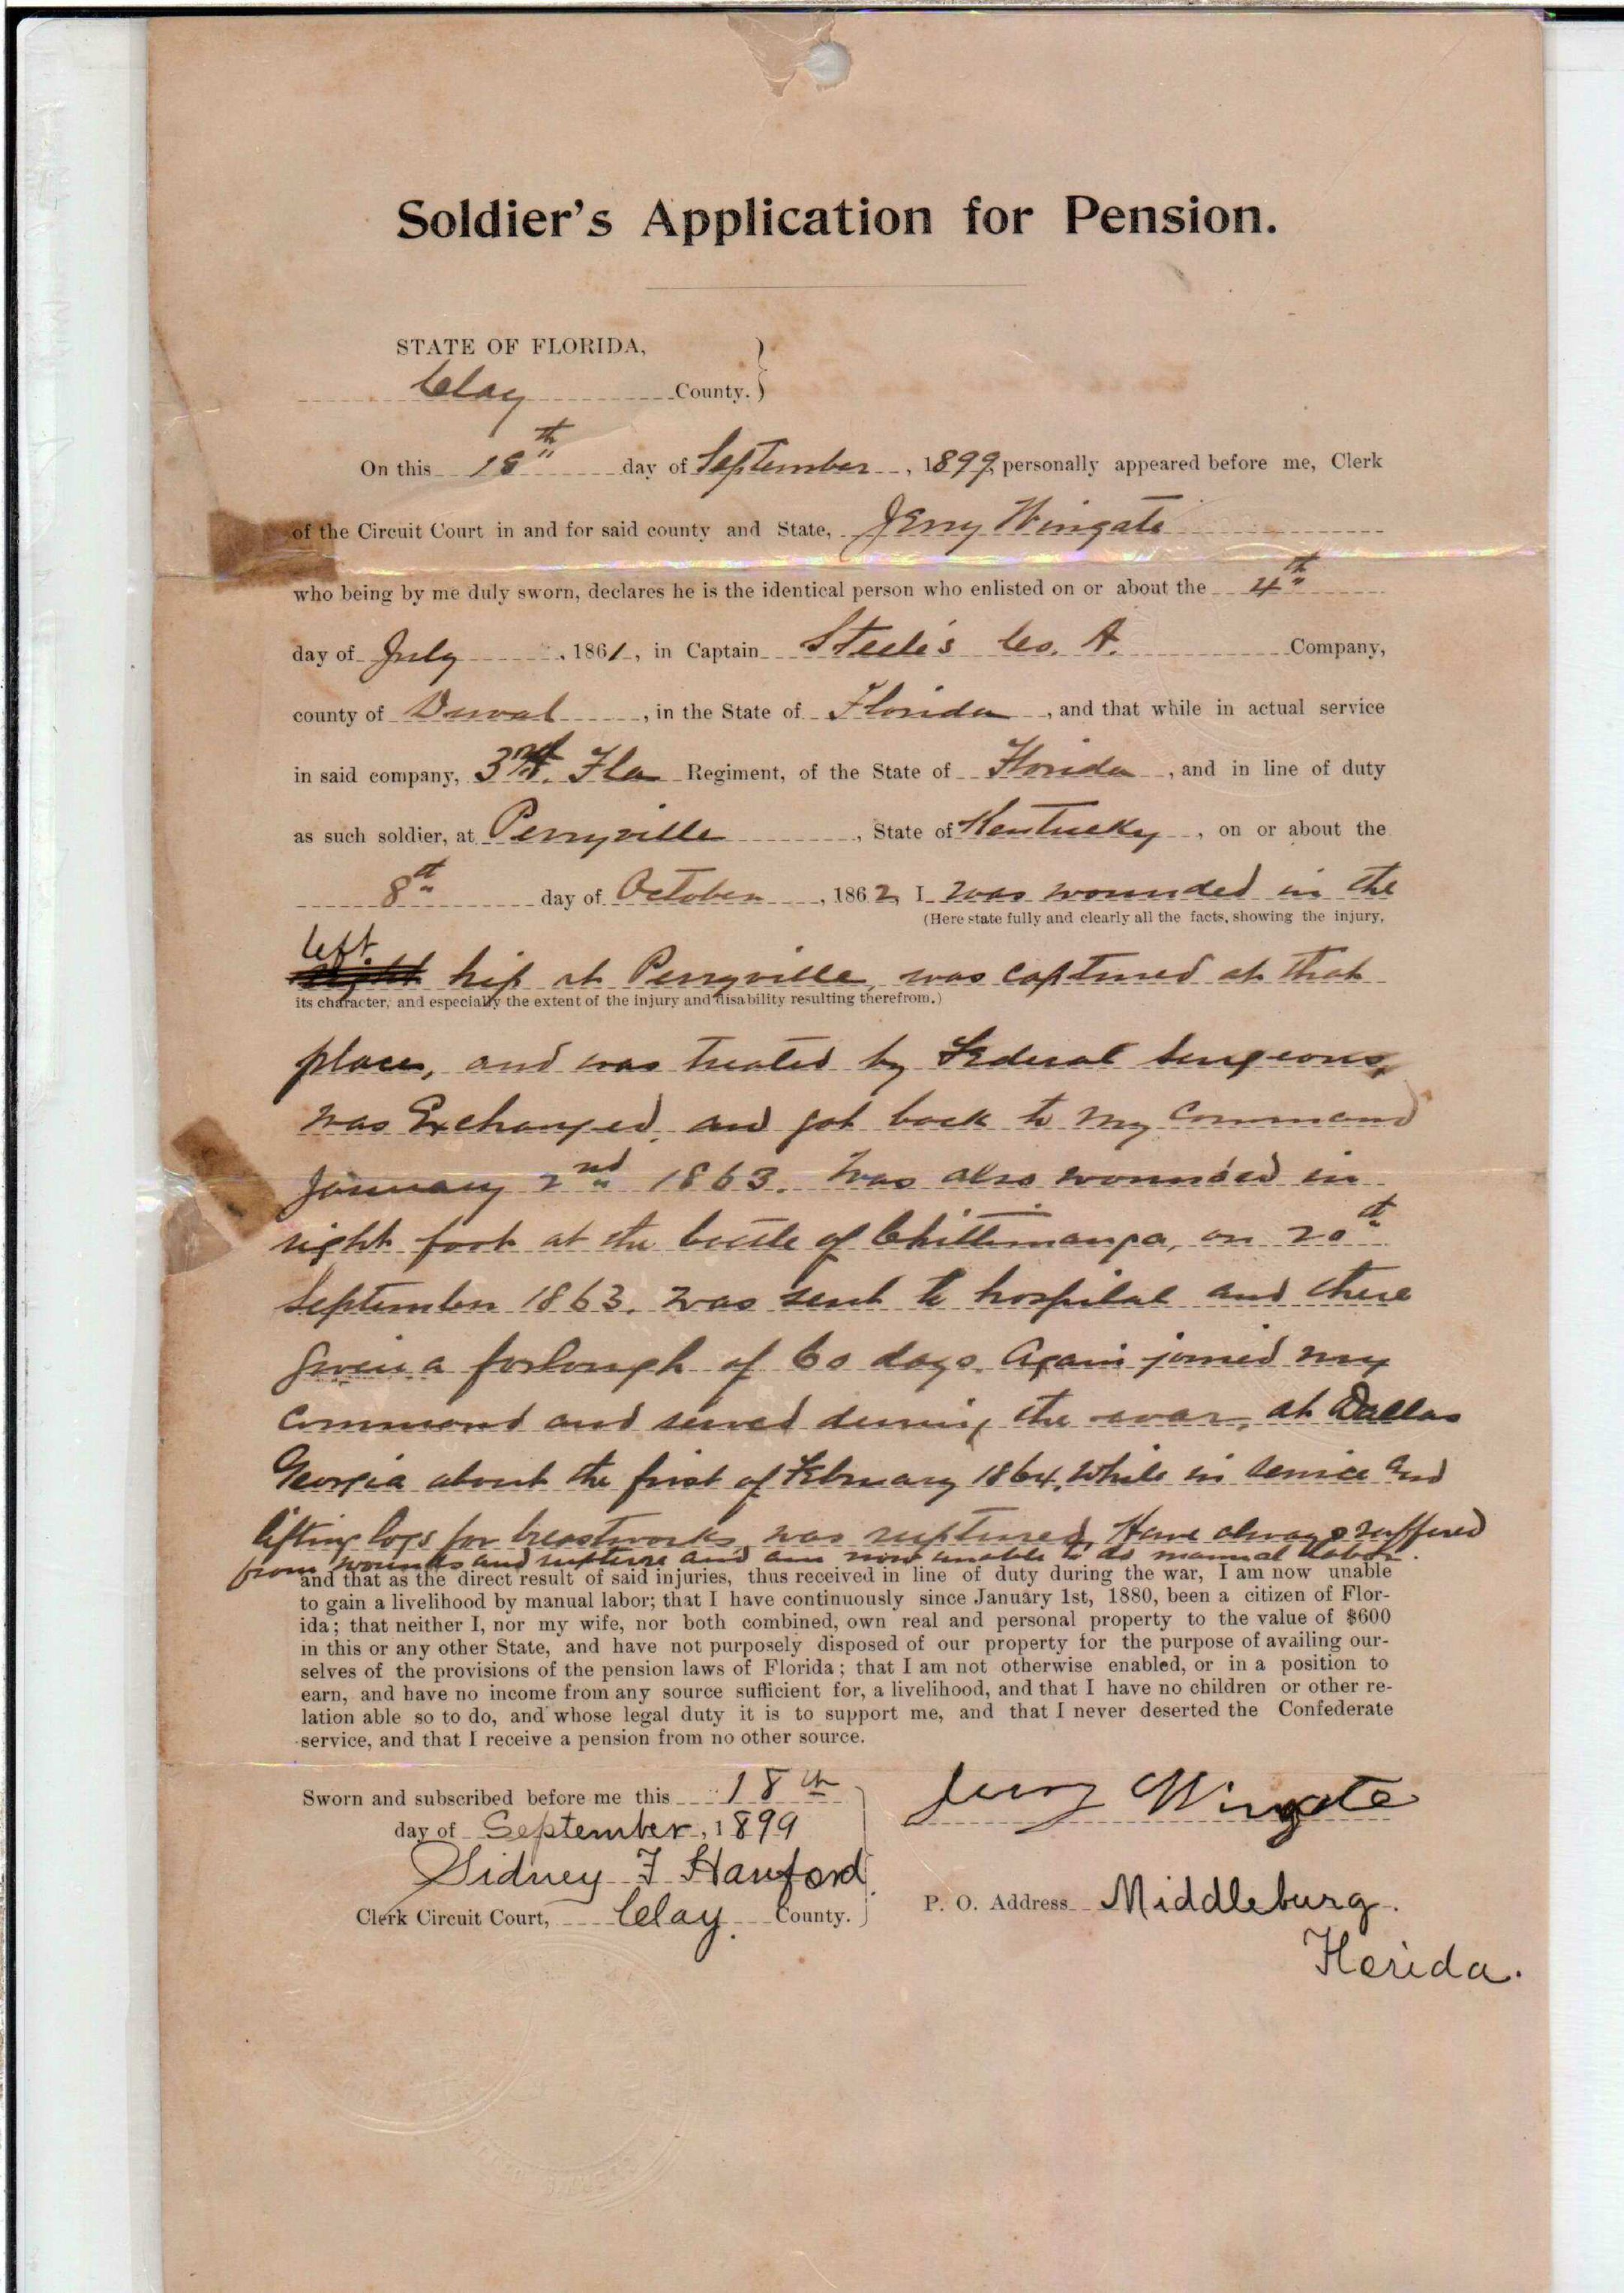 Soldier's Application for Pension.
STATE OF FLORIDA,
Clay County.
On this 18th day of September, 1899, personally appeared before me, Clerk
of the Circuit Court in and for said county and State, Jerry Wingate
who being by me duly sworn, declares he is the identical person who enlisted on or about the 4th
day of July, 1861, in Captain Steele's Co. A. Company,
county of Duval, in the State of Florida, and that while in actual service
in said company, Fla Regiment, of the State of Florida, and in line of duty
as such soldier, at Perryville, State of Kentucky, on or about the
8th day of October, 1862, I was wounded in the
(Here state fully and clearly all the facts, showing the injury,
left
right hip at Perryville, was captured at that
its character, and especially the extent of the injury and disability resulting therefrom.)
place, and was treated by Federal Surgeons,
was Exchanged, and got back to my Command
January 2nd 1863. Was also wounded in
right foot at the battle of on 20th
September 1863. was sent to hospital and there
given a forlough of 60 days. Again joined my
Command and served during the war, at Dallas
Georgia about the first of February 1864, while in service and
lifting logs for breastworks, was ruptured, Have always suffered
from wounds and rupture and am now unable to do manual labor.
and that as the direct result of said injuries, thus received in line of duty during the war, I am now unable
to gain a livelihood by manual labor; that I have continuously since January 1st, 1880, been a citizen of Flor-
ida; that neither I, nor my wife, nor both combined, own real and personal property to the value of $600
in this or any other State, and have not purposely disposed of our property for the purpose of availing our-
selves of the provisions of the pension laws of Florida; that I am not otherwise enabled, or in a position to
earn, and have no income from any source sufficient for, a livelihood, and that I have no children or other re-
lation able so to do, and whose legal duty it is to support me, and that I never deserted the Confederate
service, and that I receive a pension from no other source.
Sworn and subscribed before me this 18th
day of September, 1899
Sidney F Hanford
Clerk Circuit Court, Clay County.
Jerry Wingate
P. O. Address Middleburg.
Florida.